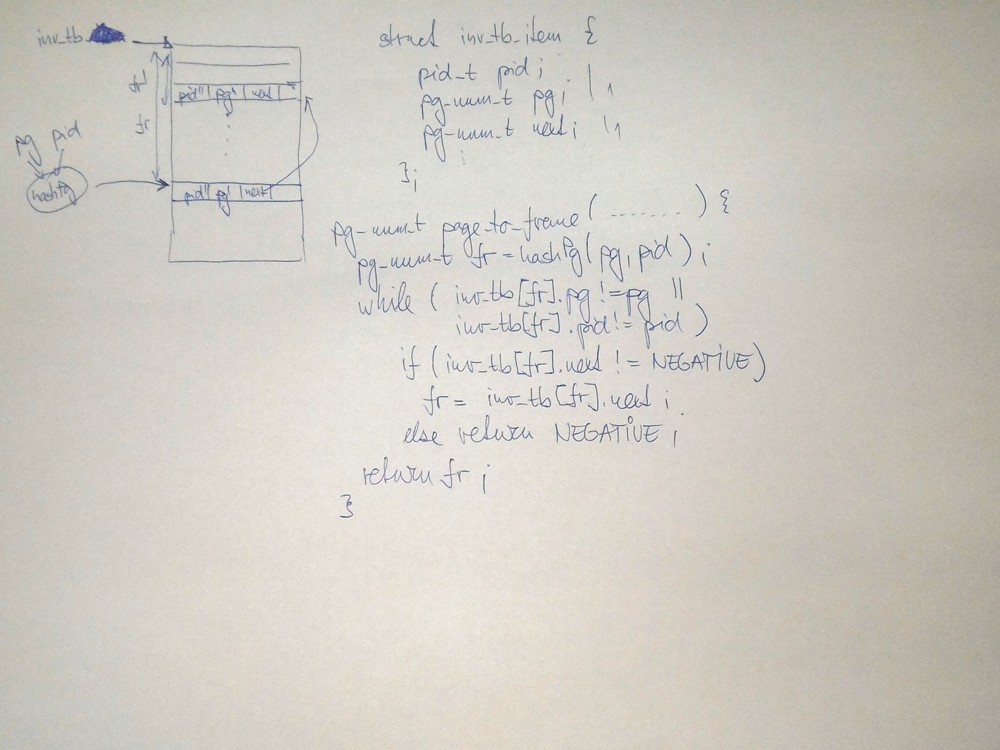 inv_tb
fr'
fr
pid'' pg'' next
pg pid
hashPg
pid' pg' next
struct inv_tb_item {
pid_t pid;
pg_num_t pg;
pg_num_t next;
};
pg_num_t page_to_frame(.......) {
pg_num_t fr = hashPg(pg, pid);
while (inv_tb[fr].pg != pg ||
inv_tb[fr].pid != pid)
if (inv_tb[fr].next != NEGATIVE)
fr = inv_tb[fr].next;
else return NEGATIVE;
return fr;
}